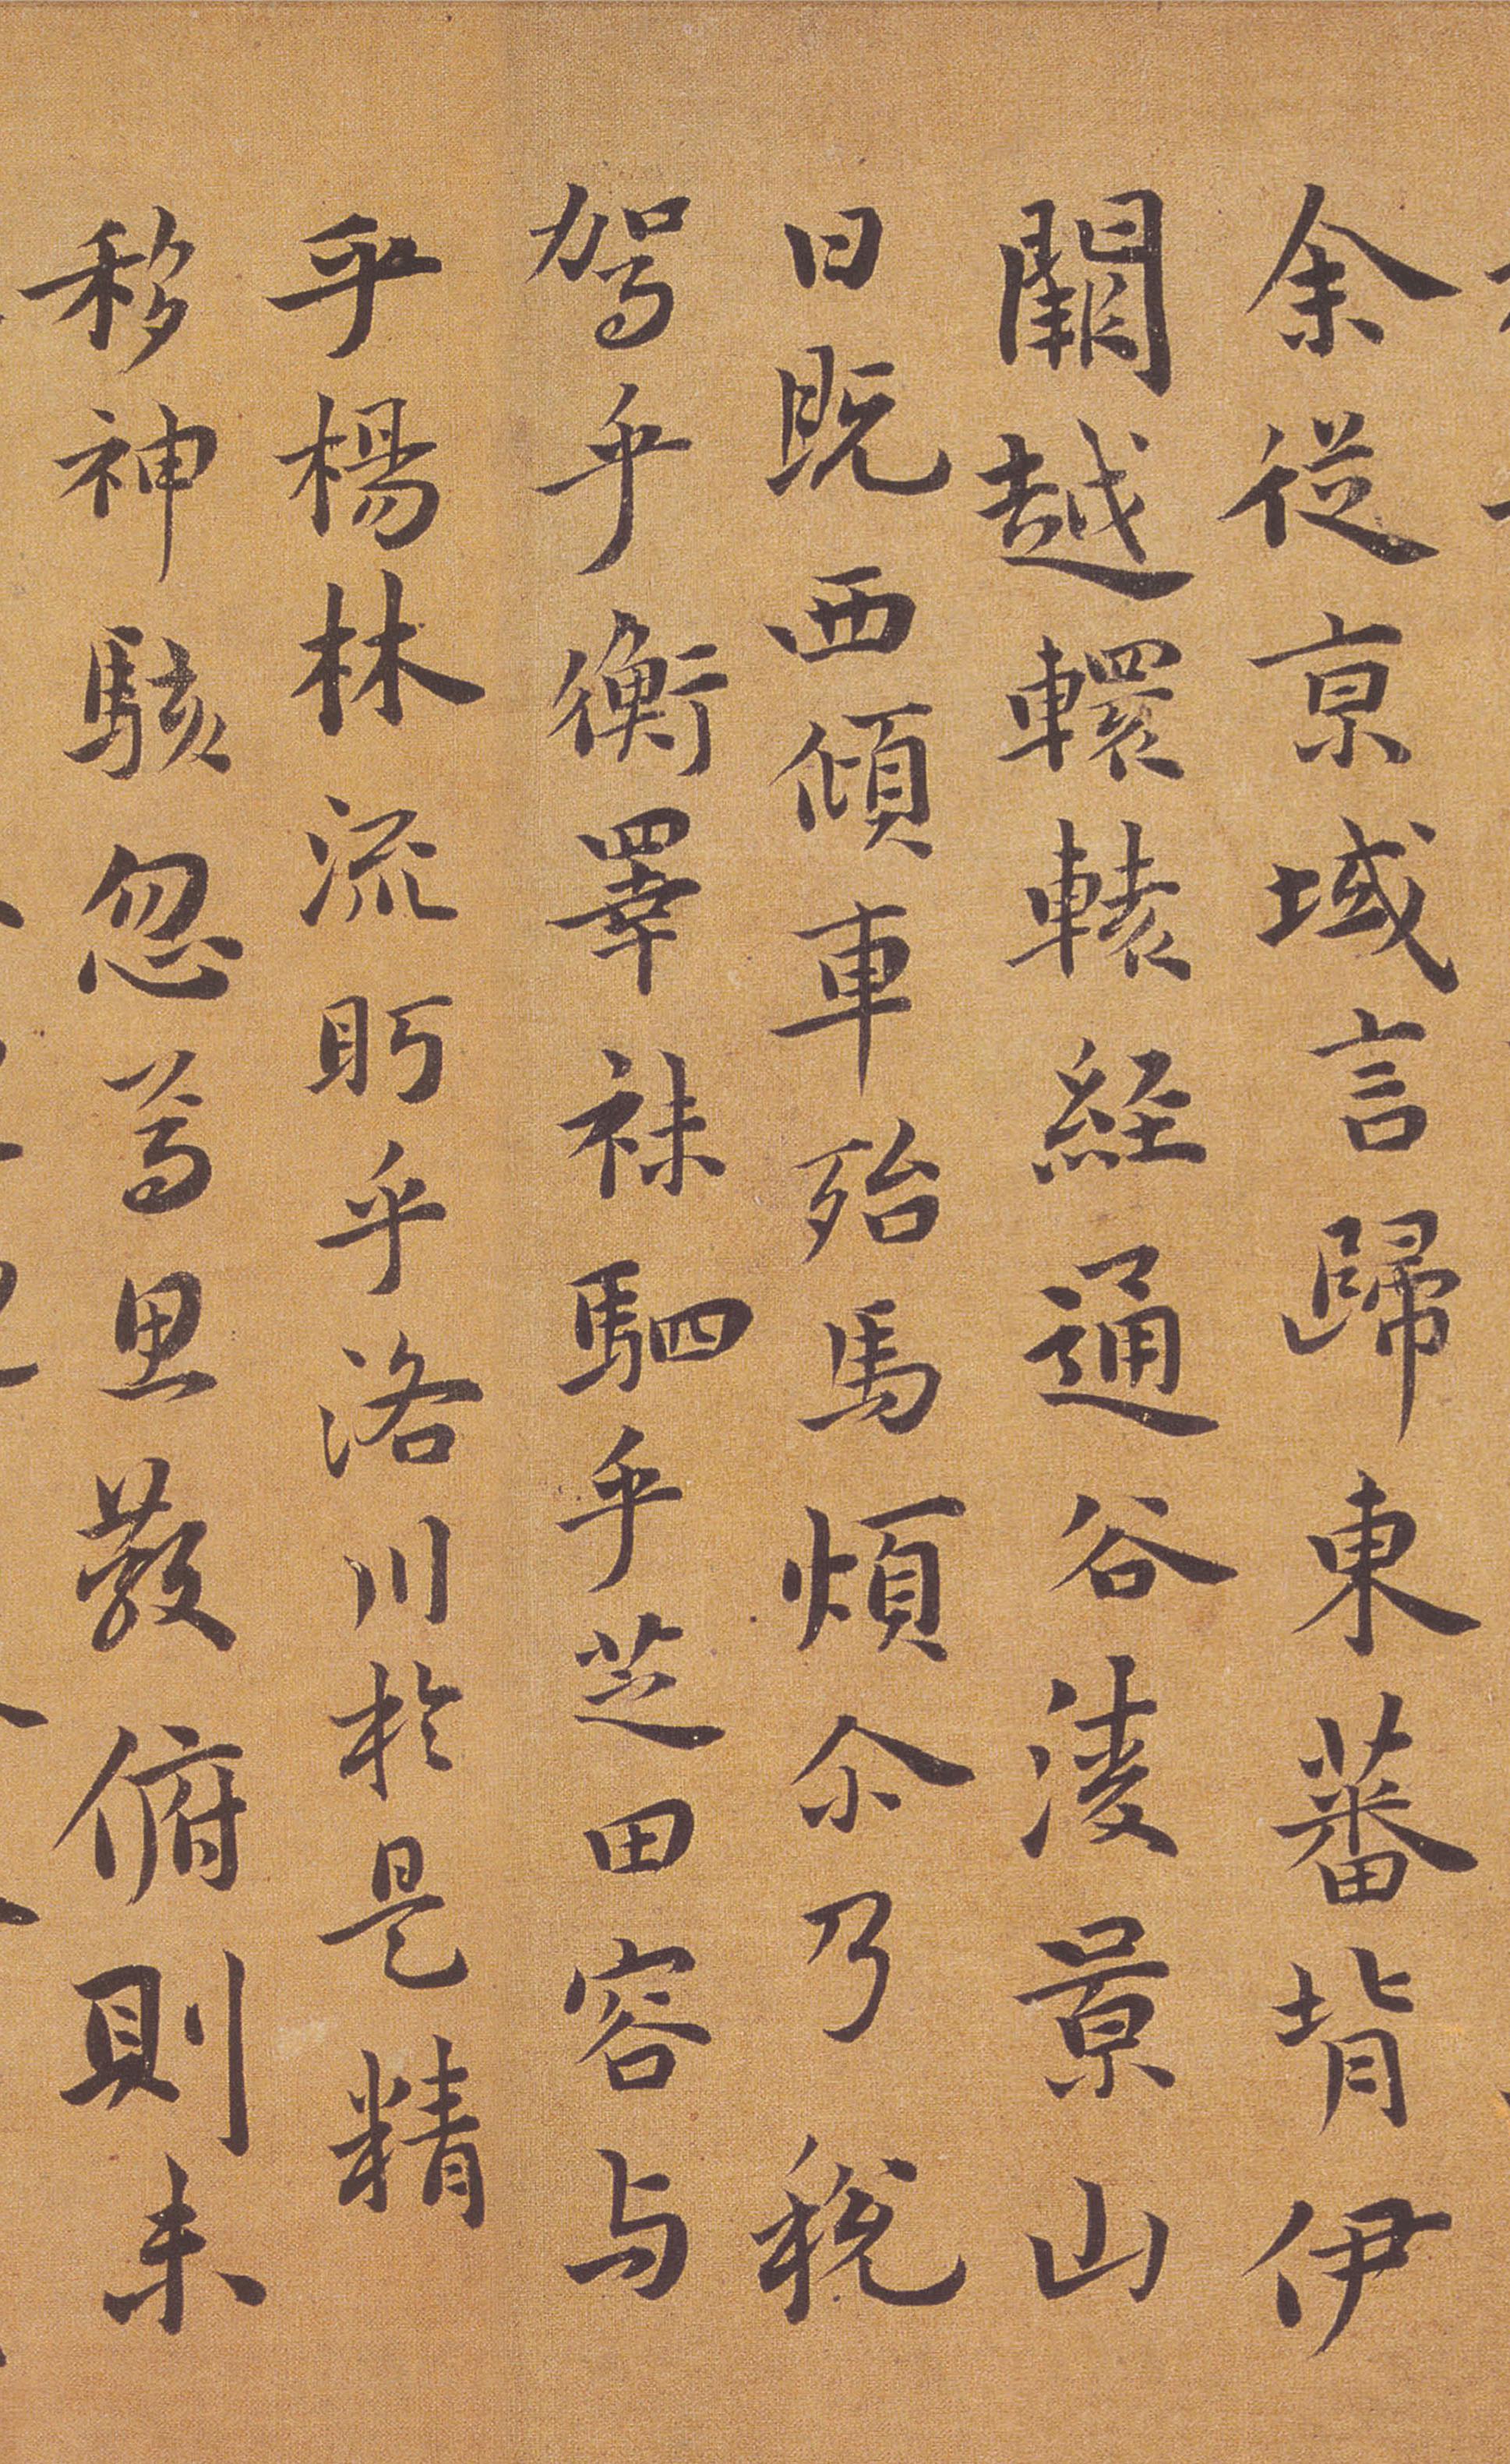 余從京域言歸東蕃背伊
闕越轘轅經通谷淩景山
日既西傾車殆馬煩尒乃稅
駕乎蘅睪秣駟乎芝田容与
乎楊林流眄乎洛川於是精
移神駭忽焉思散俯則未